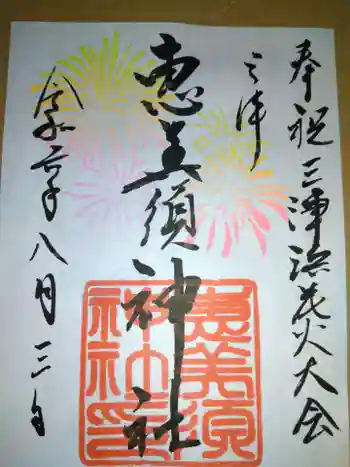 奉祝三津浜花火大会
三津
恵美須神社
恵美須神社印
令和六年八月三日